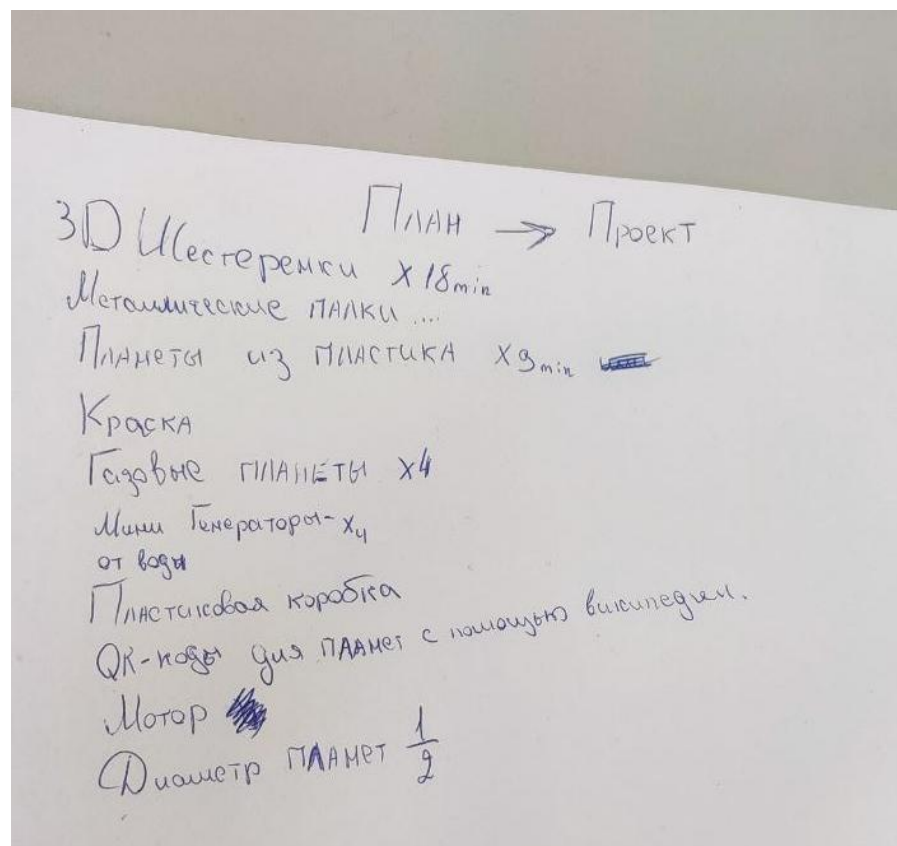 План → Проект
3D Шестеренки x18min
Металлические палки ...
Планеты из пластика x9min
Краска
Газовые планеты x4
Мини Генераторы- x4
от воды
Пластиковая коробка
QR-коды для планет с помощью википедии.
Мотор
Диаметр планет 1/2